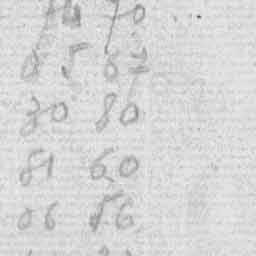 70
85 67
30 80
81 60
06 56